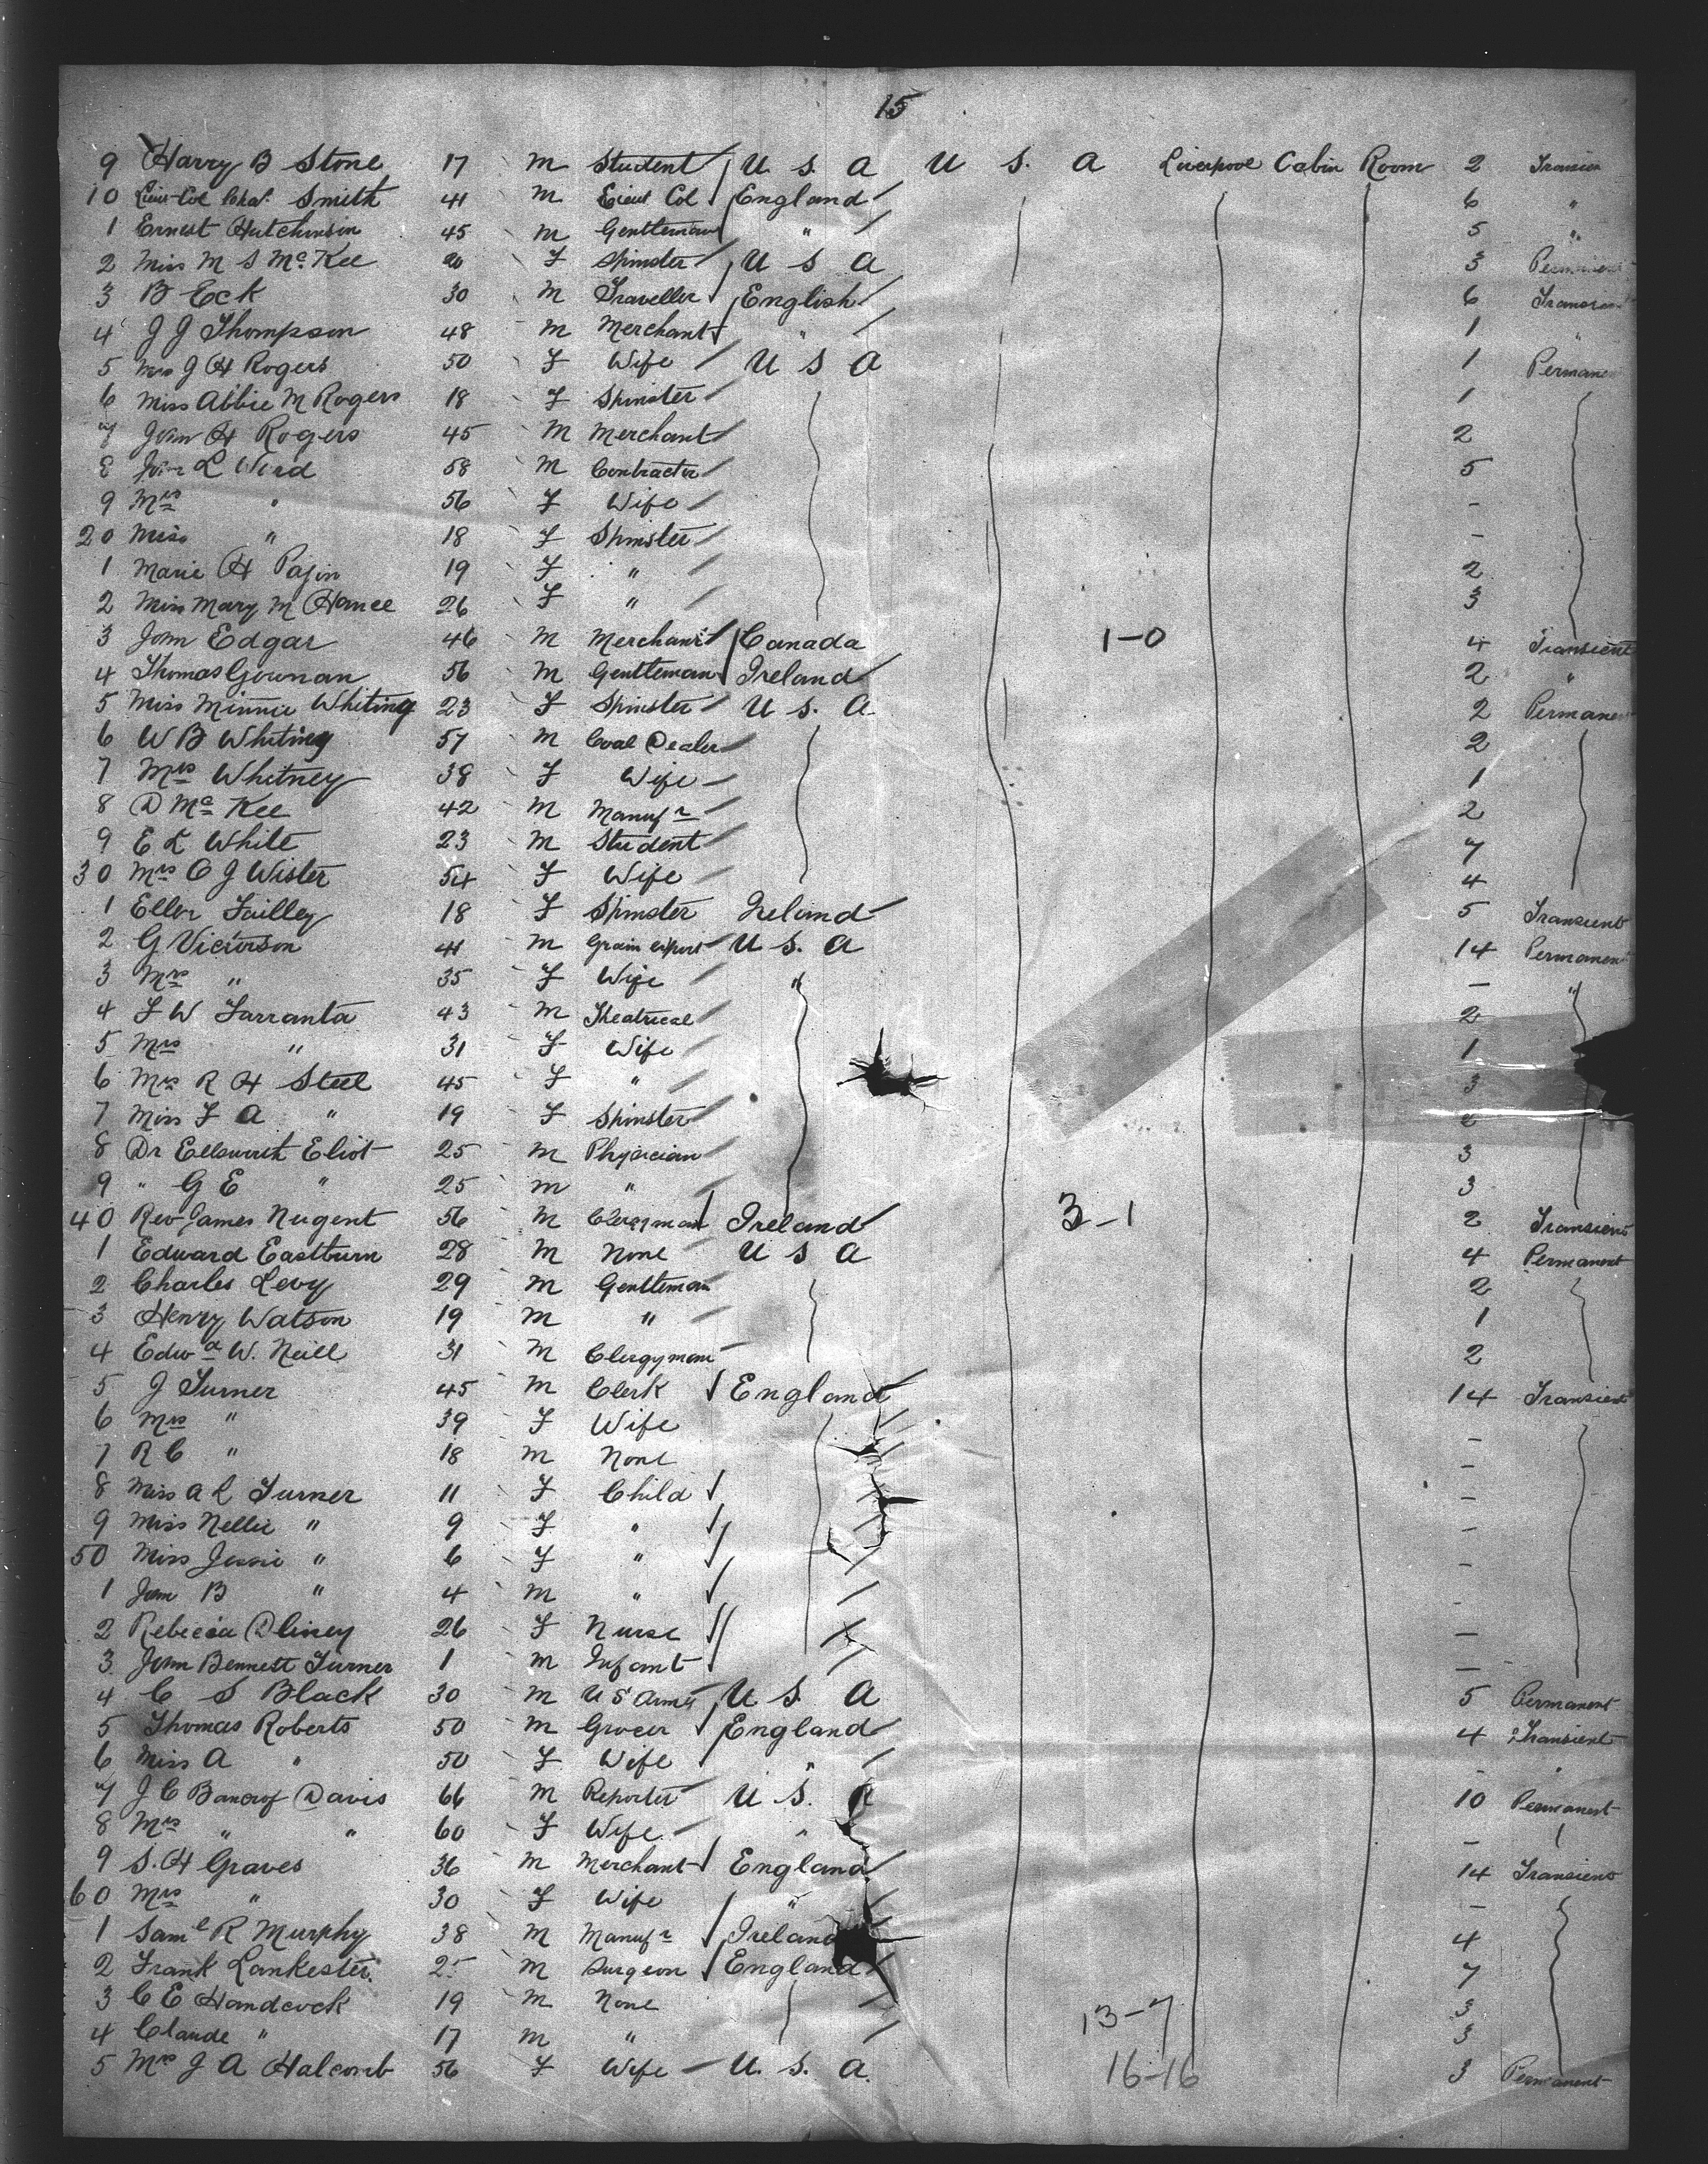 15
9 Harry B Stone 17 m Student U. S. A U S. A Liverpool Cabin Room 2
10 Lieut-Col Chas. Smith 41 m Lieut Col England 6 "
1 Ernest Hutchinson 45 m Gentleman " 5 "
2 Miss M S McKee 20 F Spinster U S A 3
3 B Eck 30 m Traveller English 6
4 J J Thompson 48 m Merchant " 1 "
5 Mrs J H Rogers 50 F Wife U S A 1
6 Miss Abbie M Rogers 18 F Spinster 1
7 John H Rogers 45 m Merchant 2
8 John L 58 m Contractor 5
9 Mrs " 56 F Wife -
20 Miss " 18 F Spinster -
1 Marie H 19 F " 2
2 Miss Mary M Hance 26 F " 3
3 John Edgar 46 m Merchant Canada 1-0 4 Transient
4 Thomas 56 m Gentleman Ireland 2 "
5 Miss Minnie Whiting 23 F Spinster U. S. A. 2
6 W B Whiting 57 m Coal Dealer 2
7 Mrs Whitney 38 F Wife 1
8 D McKee 42 m Manufr 2
9 E L White 23 m Student 7
30 Mrs C J Wister 54 F Wife 4
1 Ellen 18 F Spinster Ireland 5 Transient
2 G 41 m Grain export U. S. A 14
3 Mrs " 35 F Wife " - "
4 F W Farranta 43 m Theatrical 2
5 Mrs " 31 F Wife 1
6 Mrs R H Steel 45 F " 3
7 Miss F A " 19 F Spinster
8 Dr Ellsworth Eliot 25 m Physician 3
9 " G E " 25 m " 3
40 Rev James Nugent 56 m Clergyman Ireland 3-1 2 Transient
1 Edward Eastburn 28 m None U S A 4 Permanent
2 Charles Levy 29 m Gentleman 2
3 Henry Watson 19 m " 1
4 Edwd W. Neill 31 m Clergyman 2
5 J Turner 45 m Clerk England 14 Transient
6 Mrs " 39 F Wife -
7 R C " 18 m None -
8 Miss A L Turner 11 F Child -
9 Miss Nellie " 9 F " -
50 Miss Jessie " 6 F " -
1 B " 4 m " -
2 Rebecca 26 F Nurse -
3 John Bennett Turner 1 m Infant -
4 C S Black 30 m U S Army U S. A 5 Permanent
5 Thomas Roberts 50 m Grocer England 4 Transient
6 Miss A " 50 F Wife " - "
7 J C Bancrof Davis 66 m Reporter U. S. A 10 Permanent
8 Mrs " " 60 F Wife " -
9 S. H Graves 36 m Merchant England 14 Transient
60 Mrs " 30 F Wife " -
1 Saml R Murphy 38 m Manufr Ireland 4
2 Frank Lankester 25 m Surgeon England 7
3 C E Handcock 19 m None 13-7 3
4 Claude " 17 m " 3
5 Mrs J A Halcomb 56 F Wife U. S. A. 16-16 3 Permanent